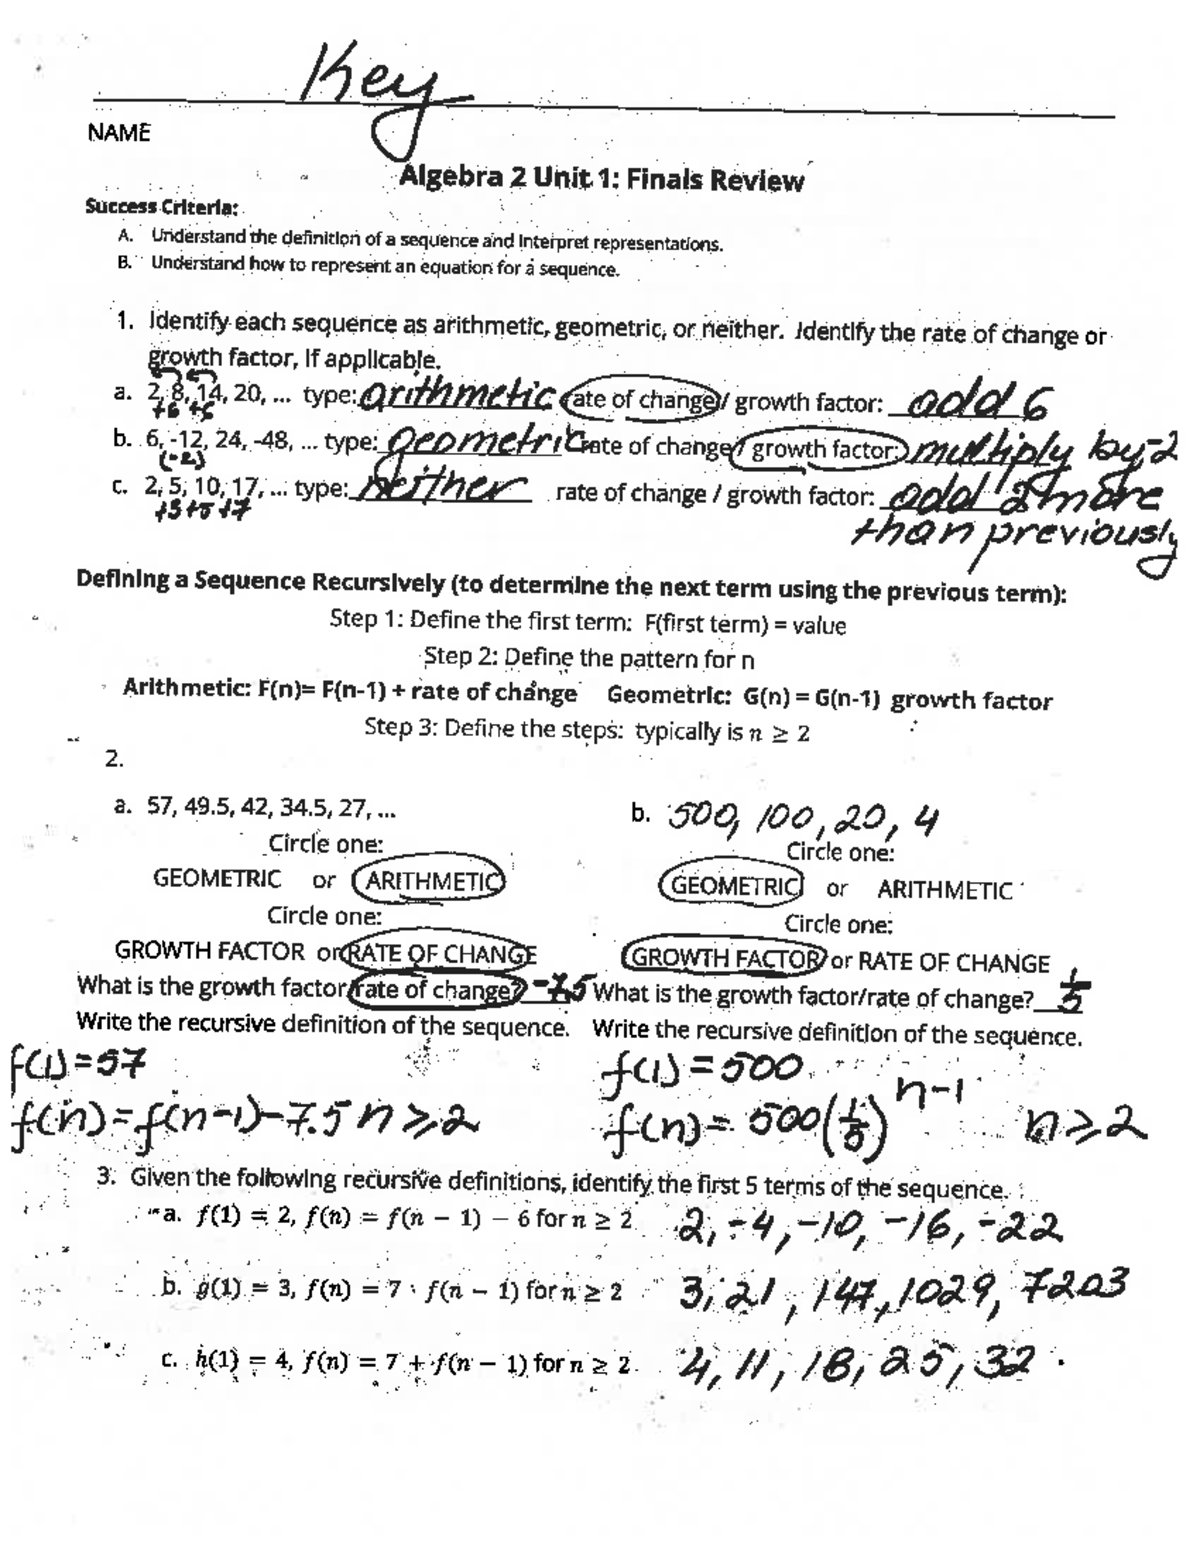 Key
NAME
Algebra 2 Unit 1: Finals Review
Success Criteria:
A. Understand the definition of a sequence and interpret representations.
B. Understand how to represent an equation for a sequence.
1. Identify each sequence as arithmetic, geometric, or neither. Identify the rate of change or
growth factor, if applicable.
a. 2, 8, 14, 20, ... type: arithmetic rate of change / growth factor: add 6
+6 +6
b. 6, -12, 24, -48, ... type: geometric rate of change / growth factor: multiply by -2
(-2)
c. 2, 5, 10, 17, ... type: neither rate of change / growth factor: add 2 more
+3 +5 +7
than previously
Defining a Sequence Recursively (to determine the next term using the previous term):
Step 1: Define the first term: F(first term) = value
Step 2: Define the pattern for n
Arithmetic: F(n)= F(n-1) + rate of change Geometric: G(n) = G(n-1) growth factor
Step 3: Define the steps: typically is n ≥ 2
2.
a. 57, 49.5, 42, 34.5, 27, ... b. 500, 100, 20, 4
Circle one: Circle one:
GEOMETRIC or ARITHMETIC GEOMETRIC or ARITHMETIC
Circle one: Circle one:
GROWTH FACTOR or RATE OF CHANGE GROWTH FACTOR or RATE OF CHANGE
What is the growth factor/rate of change? -7.5 What is the growth factor/rate of change? 1/5
Write the recursive definition of the sequence. Write the recursive definition of the sequence.
f(1)=57 f(1)=500
f(n)=f(n-1)-7.5 n≥2 f(n)= 500(1/5)^n-1 n≥2
3. Given the following recursive definitions, identify the first 5 terms of the sequence.
a. f(1) = 2, f(n) = f(n − 1) − 6 for n ≥ 2 2, -4, -10, -16, -22
b. g(1) = 3, f(n) = 7 · f(n − 1) for n ≥ 2 3, 21, 147, 1029, 7203
c. h(1) = 4, f(n) = 7 + f(n − 1) for n ≥ 2 4, 11, 18, 25, 32